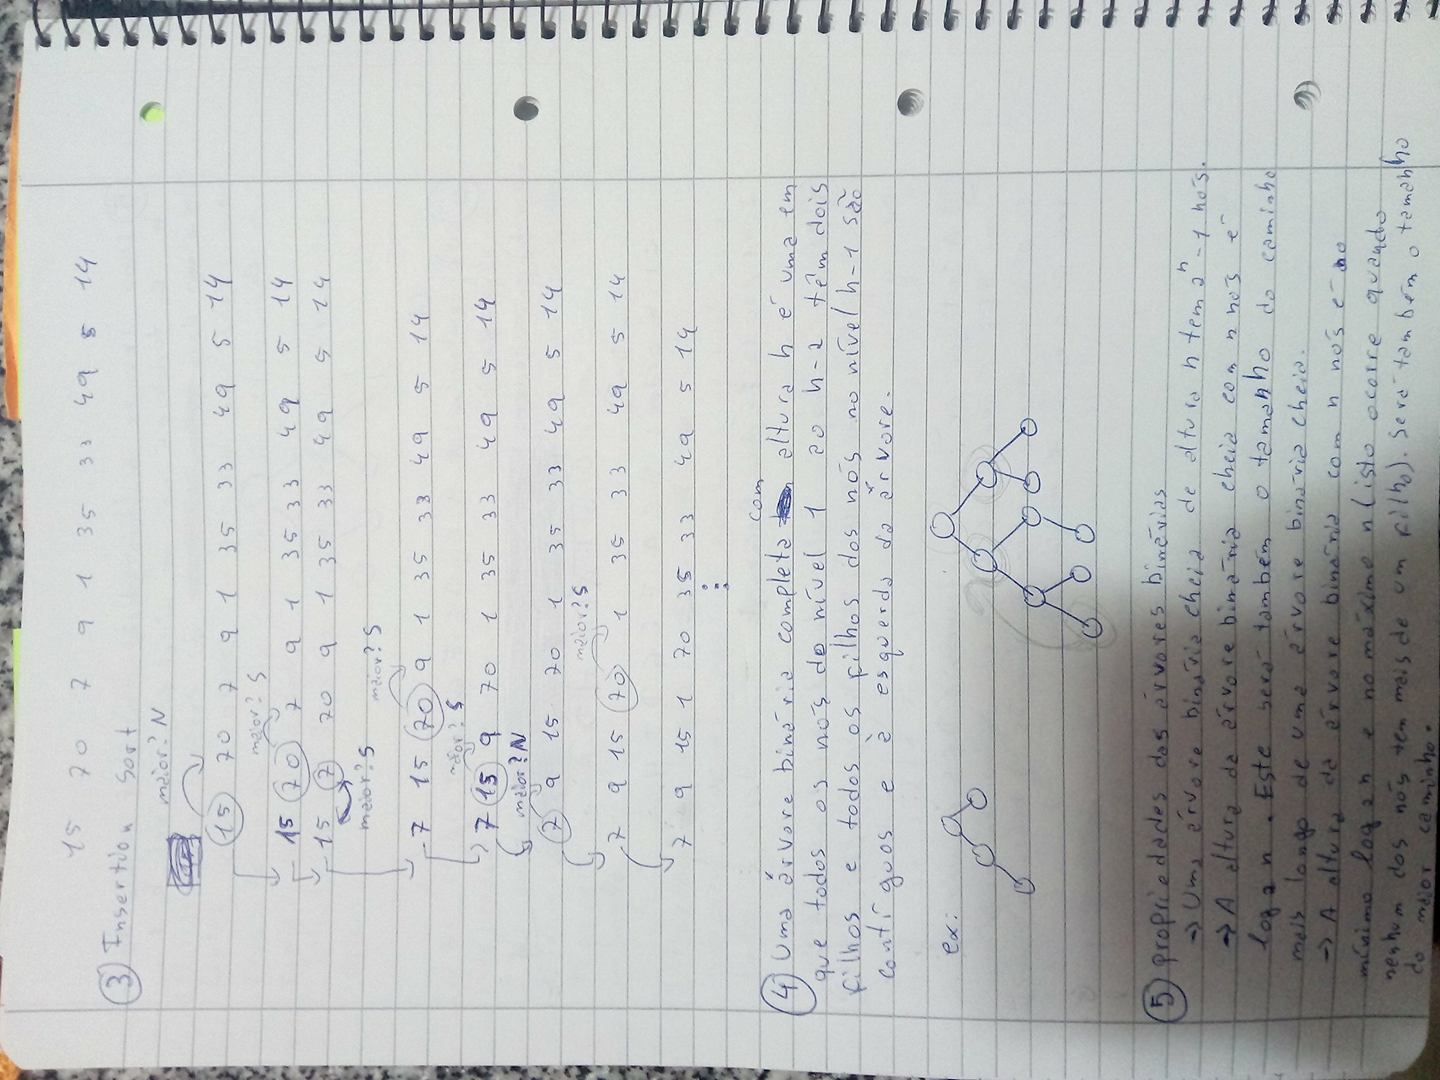 15 70 7 9 1 35 33 49 5 14
3 Insertion Sort
maior? N
15 70 7 9 1 35 33 49 5 14
maior? S
15 70 7 9 1 35 33 49 5 14
15 7 70 9 1 35 33 49 5 14
maior? S
maior? S
7 15 70 9 1 35 33 49 5 14
maior? S
7 15 9 70 1 35 33 49 5 14
maior? N
7 9 15 70 1 35 33 49 5 14
maior? S
7 9 15 70 1 35 33 49 5 14
7 9 15 1 70 35 33 49 5 14
⋮
4 Uma árvore binária completa com altura h é uma em
que todos os nós do nível 1 ao h-2 têm dois
filhos e todos os filhos dos nós no nível h-1 são
contíguos e à esquerda da árvore.
ex:
5 propriedades das árvores binárias
→ Uma árvore binária cheia de altura h tem 2^h - 1 nós.
→ A altura da árvore binária cheia com n nós é
log 2 n. Este será também o tamanho do caminho
mais longo de uma árvore binária cheia.
→ A altura da árvore binária com n nós é no
mínimo log 2 n e no máximo n (isto ocorre quando
nenhum dos nós tem mais de um filho). Será também o tamanho
do maior caminho.